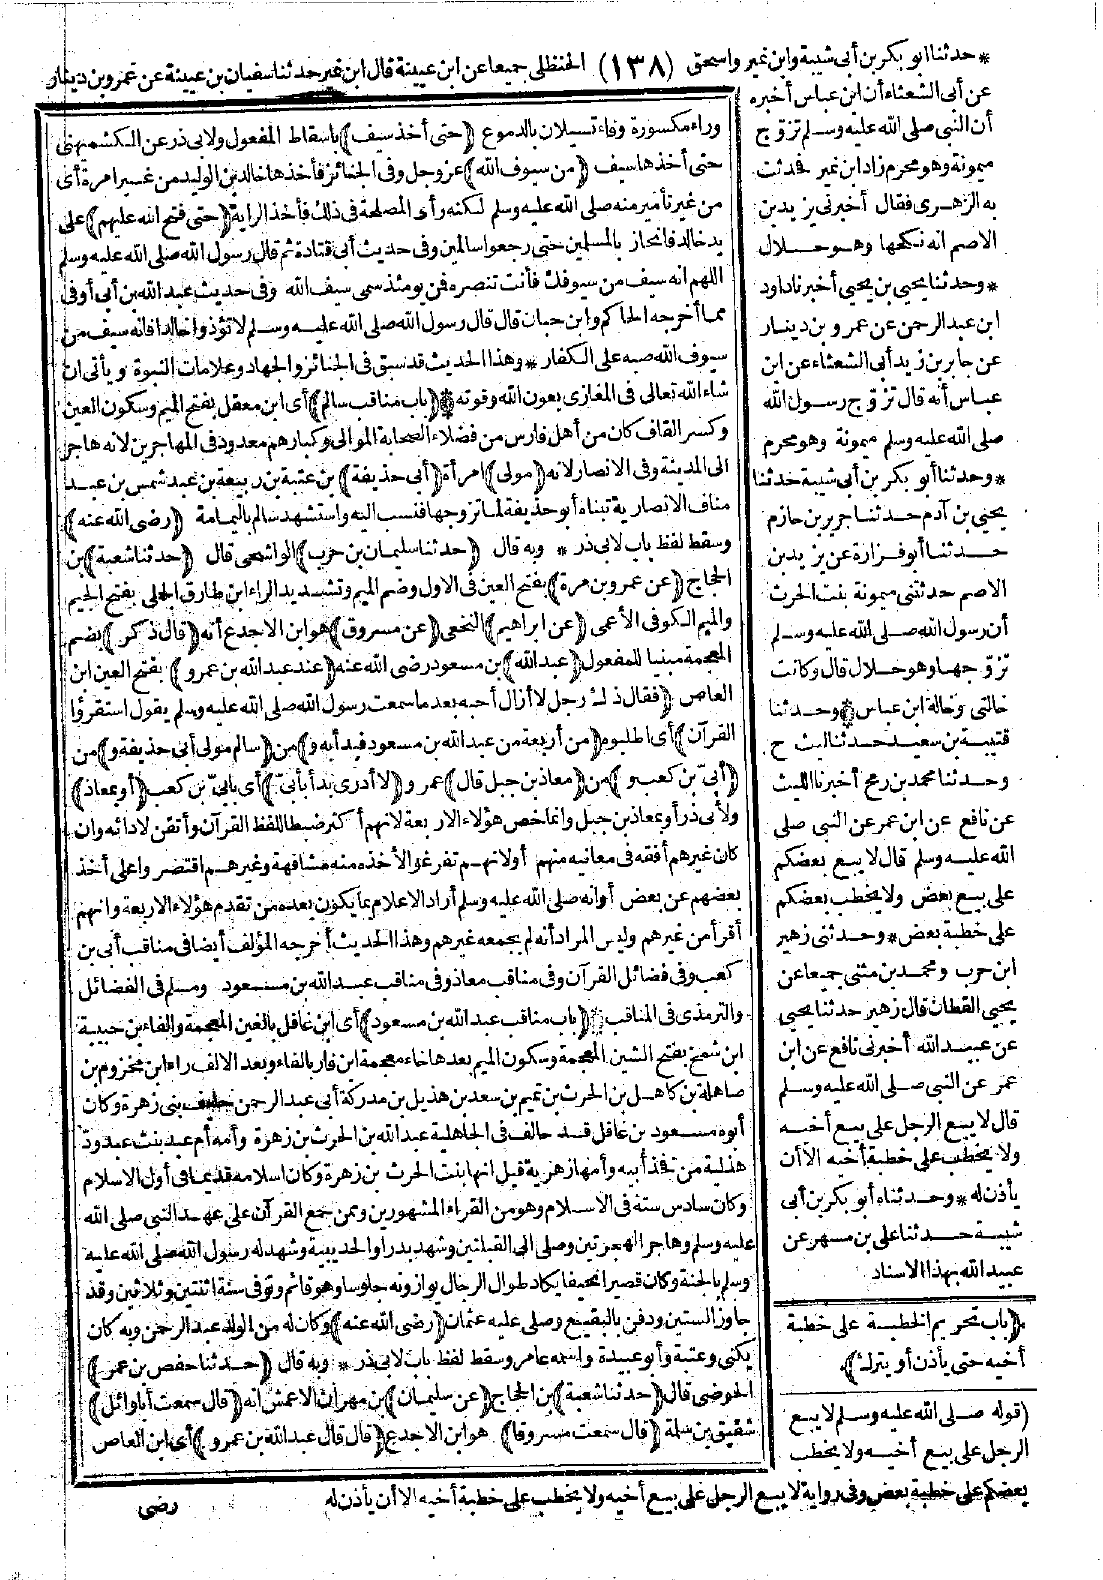 * حدثنا أبو بكر بن أبى شيبة وابن نمير واسحق (١٣٨) الحنظلى جميعا عن ابن عيينة قال ابن نمير حدثنا سفيان بن عيينة عن عمرو بن دينار
عن أبى الشعثاء أن ابن عباس أخبره
أن النبى صلى الله عليه وسلم تزوج
ميمونة وهو محرم زاد ابن نمير فحدثت
به الزهرى فقال أخبرنى يزيد بن
الاصم انه نكحها وهو حلال
* وحدثنا يحيى بن يحيى أخبرنا داود
ابن عبد الرحمن عن عمرو بن دينار
عن جابر بن زيد أبى الشعثاء عن ابن
عباس أنه قال تزوج رسول الله
صلى الله عليه وسلم ميمونة وهو محرم
* وحدثنا أبو بكر بن أبى شيبة حدثنا
يحيى بن آدم حدثنا جرير بن حازم
حدثنا أبو فزارة عن يزيد بن
الاصم حدثتنى ميمونة بنت الحرث
أن رسول الله صلى الله عليه وسلم
تزوجها وهو حلال قال وكانت
خالتى وخالة ابن عباس * وحدثنا
قتيبة بن سعيد حدثنا ليث ح
وحدثنا محمد بن رمح أخبرنا الليث
عن نافع عن ابن عمر عن النبى صلى
الله عليه وسلم قال لا يبع بعضكم
على بيع بعض ولا يخطب بعضكم
على خطبة بعض * وحدثنى زهير
ابن حرب ومحمد بن مثنى جميعا عن
يحيى القطان قال زهير حدثنا يحيى
عن عبيد الله أخبرنى نافع عن ابن
عمر عن النبى صلى الله عليه وسلم
قال لا يبع الرجل على بيع أخيه
ولا يخطب على خطبة أخيه الا أن
يأذن له * وحدثناه أبو بكر بن أبى
شيبة حدثنا على بن مسهر عن
عبيد الله بهذا الاسناد
(باب تحريم الخطبة على خطبة
أخيه حتى يأذن أو يترك)
(قوله صلى الله عليه وسلم لا يبع
الرجل على بيع أخيه ولا يخطب
بعضكم على خطبة بعض وفى رواية لا يبع الرجل على بيع أخيه ولا يخطب على خطبة أخيه الا أن يأذن له
وراء مكسورة وفاء تسيلان بالدموع (حتى أخذ سيف) باسقاط المفعول ولابى ذر عن الكشميهنى
حتى أخذها سيف (من سيوف الله) عز وجل وفى الجنائز فأخذها خالد بن الوليد من غير امرة أى
من غير تأمير منه صلى الله عليه وسلم لكنه رأى المصلحة فى ذلك فأخذ الراية (حتى فتح الله عليهم) على
يد خالد فانحاز بالمسلمين حتى رجعوا سالمين وفى حديث أبى قتادة ثم قال رسول الله صلى الله عليه وسلم
اللهم انه سيف من سيوفك فأنت تنصره فمن يومئذ سمى سيف الله وفى حديث عبد الله بن أبى أوفى
مما أخرجه الحاكم وابن حبان قال قال رسول الله صلى الله عليه وسلم لا تؤذوا خالدا فانه سيف من
سيوف الله صبه على الكفار * وهذا الحديث قد سبق فى الجنائز والجهاد وعلامات النبوة ويأتى ان
شاء الله تعالى فى المغازى بعون الله وقوته * (باب مناقب سالم) أى ابن معقل بفتح الميم وسكون العين
وكسر القاف كان من أهل فارس من فضلاء الصحابة الموالى وكبارهم معدود فى المهاجرين لانه هاجر
الى المدينة وفى الانصار لانه (مولى) امرأة (أبى حذيفة) بن عتبة بن ربيعة بن عبد شمس بن عبد
مناف الانصارية تبناه أبو حذيفة لما تزوجها فنسب اليه واستشهد سالم باليمامة (رضى الله عنه)
وسقط لفظ باب لابى ذر * وبه قال (حدثنا سليمان بن حرب) الواشحى قال (حدثنا شعبة) بن
الحجاج (عن عمرو بن مرة) بفتح العين فى الاول وضم الميم وتشديد الراء ابن طارق الجملى بفتح الجيم
والميم الكوفى الأعمى (عن ابراهيم) النخعى (عن مسروق) هو ابن الاجدع أنه (قال ذكر) بضم
المعجمة مبنيا للمفعول (عبد الله) بن مسعود رضى الله عنه (عند عبد الله بن عمرو) بفتح العين ابن
العاص (فقال ذلك رجل لا أزال أحبه بعد ما سمعت رسول الله صلى الله عليه وسلم يقول استقرؤا
القرآن) أى اطلبوه (من أربعة من عبد الله بن مسعود فبدأ به و) من (سالم مولى أبى حذيفة و) من
(أبىّ بن كعب و) من (معاذ بن جبل قال) عمرو (لا أدرى بدأ بأبىّ) أى بأبىّ بن كعب (أو بمعاذ)
ولأبى ذر أو بمعاذ بن جبل وانما خص هؤلاء الاربعة لانهم أكثر ضبطا للفظ القرآن وأتقن لادائه وان
كان غيرهم أفقه فى معانيه منهم أو لانهم تفرغوا لأخذه منه مشافهة وغيرهم اقتصروا على أخذ
بعضهم عن بعض أو انه صلى الله عليه وسلم أراد الاعلام بما يكون بعده من تقدم هؤلاء الاربعة وانهم
أقرأ من غيرهم وليس المراد أنه لم يجمعه غيرهم وهذا الحديث أخرجه المؤلف أيضا فى مناقب أبى بن
كعب وفى فضائل القرآن وفى مناقب معاذ وفى مناقب عبد الله بن مسعود ومسلم فى الفضائل
والترمذى فى المناقب * (باب مناقب عبد الله بن مسعود) أى ابن غافل بالغين المعجمة والفاء بن حبيبة
ابن شمخ بفتح الشين المعجمة وسكون الميم بعدها خاء معجمة ابن فار بالفاء وبعد الالف راء ابن مخزوم بن
صاهلة بن كاهل بن الحرث بن تميم بن سعد بن هذيل بن مدركة أبى عبد الرحمن حليف بنى زهرة وكان
أبوه مسعود بن غافل قد حالف فى الجاهلية عبد الله بن الحرث بن زهرة وأمه أم عبد بنت عبدود
هذلية من فخذ أبيه وأمها زهرية قيل انها بنت الحرث بن زهرة وكان اسلامه قديما فى أول الاسلام
وكان سادس ستة فى الاسلام وهو من القراء المشهورين وممن جمع القرآن على عهد النبى صلى الله
عليه وسلم وهاجر الهجرتين وصلى الى القبلتين وشهد بدرا والحديبية وشهد له رسول الله صلى الله عليه
وسلم بالجنة وكان قصيرا نحيفا يكاد طوال الرجال يوازونه جلوسا وهو قائم وتوفى سنة اثنتين وثلاثين وقد
جاوز الستين ودفن بالبقيع وصلى عليه عثمان (رضى الله عنه) وكان له من الولد عبد الرحمن وبه كان
يكنى وعتبة وأبو عبيدة واسمه عامر وسقط لفظ باب لابى ذر * وبه قال (حدثنا حفص بن عمر)
الحوضى قال (حدثنا شعبة) بن الحجاج (عن سليمان) بن مهران الاعمش انه (قال سمعت أبا وائل)
شقيق بن سلمة (قال سمعت مسروقا) هو ابن الاجدع (قال قال عبد الله بن عمرو) أى ابن العاص
رضى